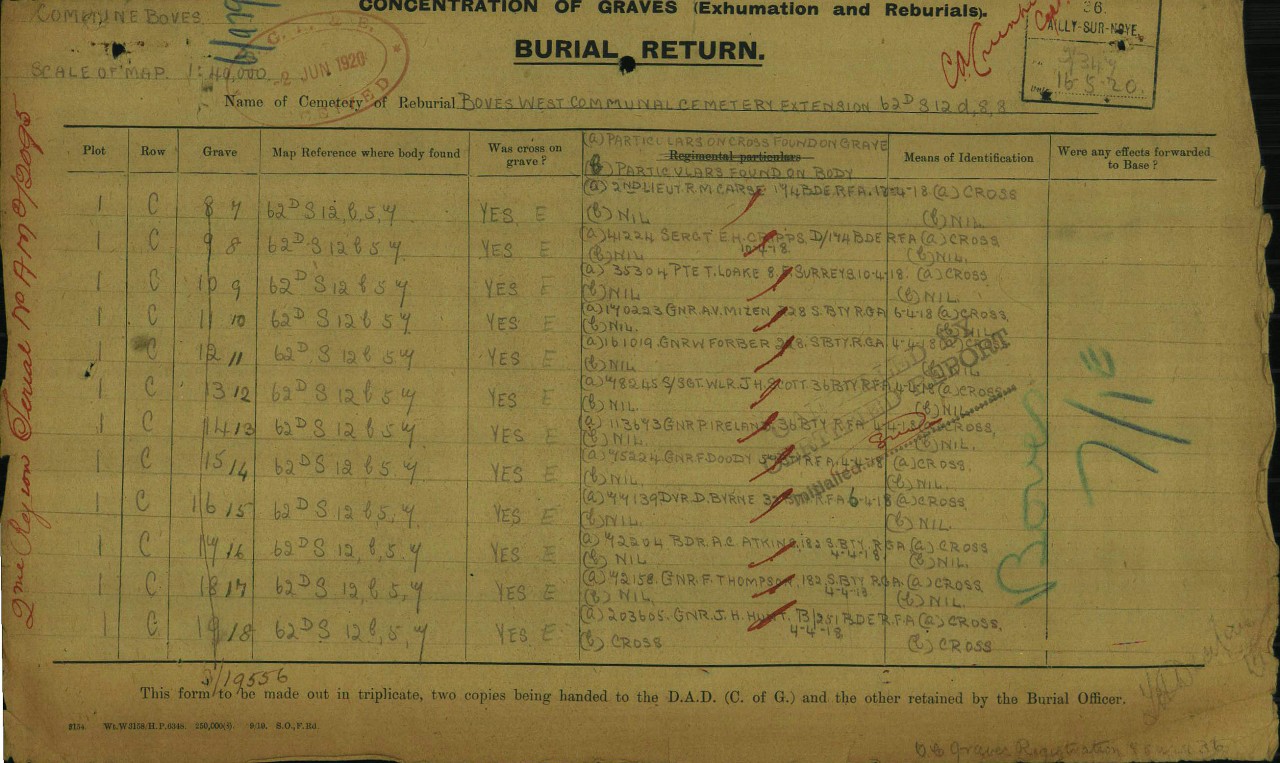 COMMUNE BOVES
CONCENTRATION OF GRAVES (Exhumation and Reburials).
36.
AILLY-SUR-NOYE
16-5-20.
BURIAL RETURN.
SCALE OF MAP. 1:40,000.
2 JUN 1920
Name of Cemetery of Reburial BOVES WEST COMMUNAL CEMETERY EXTENSION 62D S12d,8,8
Plot Row Grave Map Reference where body found Was cross on grave? (a) PARTICULARS ON CROSS FOUND ON GRAVE Regimental particulars (b) PARTICULARS FOUND ON BODY Means of Identification Were any effects forwarded to Base?
1 C 8 7 62D S 12,b,5,7 YES E (a) 2ND LIEUT. R.M. CARSE 174 BDE. R.F.A. 4-18 (a) CROSS
(b) NIL (b) NIL
1 C 9 8 62D S 12 b 5 7 YES E (a) 41224 SERGT E.H. CRIPPS. D/174 BDE RFA (a) CROSS
(b) NIL 10-4-18 (b) NIL.
1 C 10 9 62D S 12 b 5 7 YES E (a) 35304 PTE T. LOAKE 8. E SURREYS 10-4-18. (a) CROSS
(b) NIL (b) NIL.
1 C 11 10 62D S 12 b 5 7 YES E (a) 170223 GNR. A.V. MIZEN 228 S.BTY RGA 6-4-18 (a) CROSS,
(b) NIL. (b) NIL
1 C 12 11 62D S 12 b 5 7 YES E (a) 161019. GNR W FORBER 228. S BTY. R.G.A. 4-4-18 (a) CROSS
(b) NIL (b) NIL
1 C 13 12 62D S 12 b 5 7 YES E (a) 48245 S/SGT. WLR. J.H. SCOTT 36 BTY RFA 4-4-18 (a) CROSS,
(b) NIL. (b) NIL
1 C 14 13 62D S 12 b 5 7 YES E (a) 113643 GNR P. IRELAND, 36 BTY R.F.A 4-4-18 (a) CROSS,
(b) NIL. (b) NIL.
1 C 15 14 62D S 12 b 5 7 YES E (a) 45224 GNR F. DOODY BTY R.F.A. 4-4-18 (a) CROSS.
(b) NIL. (b) NIL.
1 C 16 15 62D S 12 b 5, 7 YES E (a) 44139 DVR. D. BYRNE R.F.A 6-4-18 (a) CROSS
(b) NIL. (b) NIL.
1 C 17 16 62D S 12, b, 5, 7 YES E (a) 42204 BDR. A.C. ATKINS, 182 S. BTY. R.G.A (a) CROSS
(b) NIL 4-4-18 (b) NIL.
1 C 18 17 62D S 12, b, 5, 7 YES E (a) 42158. GNR. F. THOMPSON, 182 S. BTY RGA. (a) CROSS
(b) NIL, 4-4-18 (b) NIL.
1 C 19 18 62D S 12 b, 5, 7 YES E (a) 203605. GNR. J.H. HUNT. B/251 BDE R.F.A (a) CROSS,
(b) CROSS 4-4-18 (b) CROSS
Boves
7/1E
2/19556
This form to be made out in triplicate, two copies being handed to the D.A.D. (C. of G.) and the other retained by the Burial Officer.
2154. Wt.W3158/H.P.6348. 250,000(4). 9/19. S.O., F.Rd.
Graves Registration